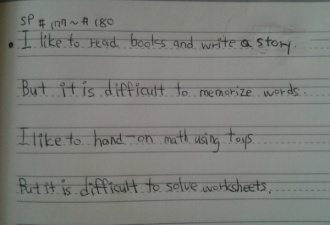 SP # 177 ~ # 180
• I like to read books and write a story.
But it is difficult to memorize words.
I like to hand-on math using toys
But it is difficult to solve worksheets.